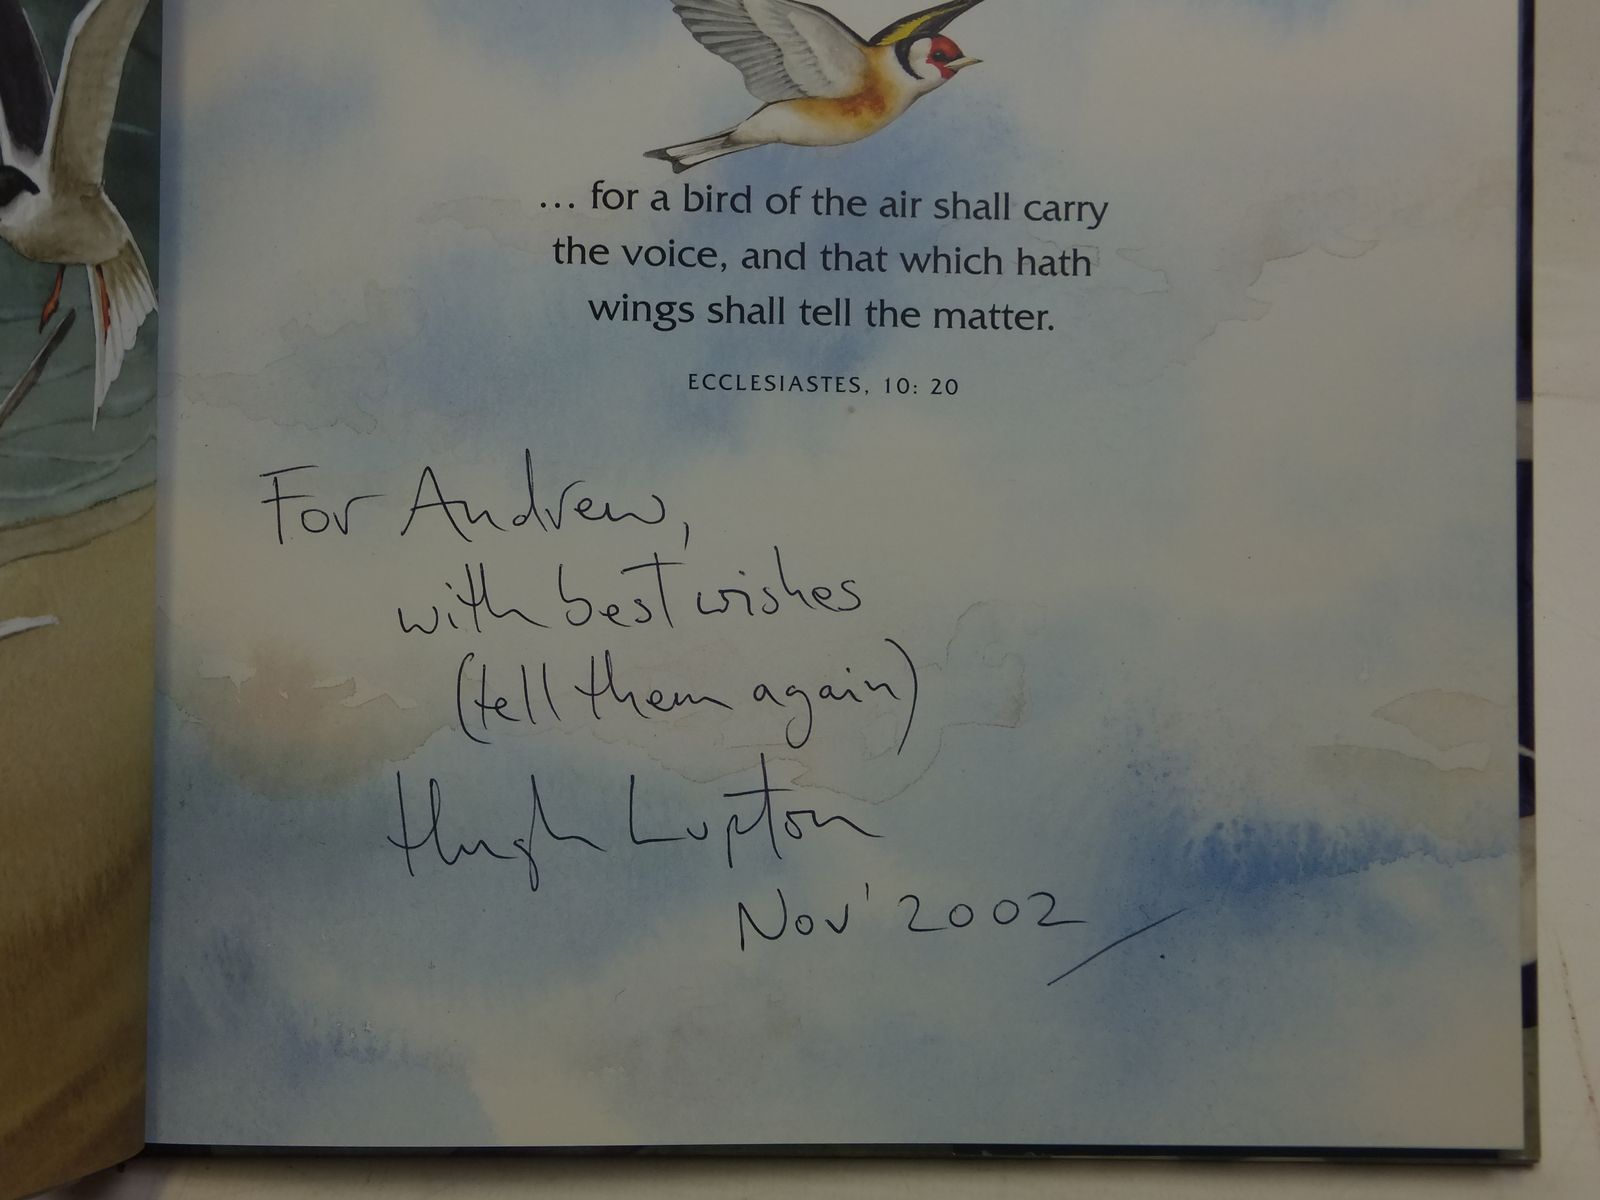 ... for a bird of the air shall carry
the voice, and that which hath
wings shall tell the matter.
ECCLESIASTES, 10: 20
For Andrew,
with best wishes
(tell them again)
Hugh Lupton
Nov' 2002